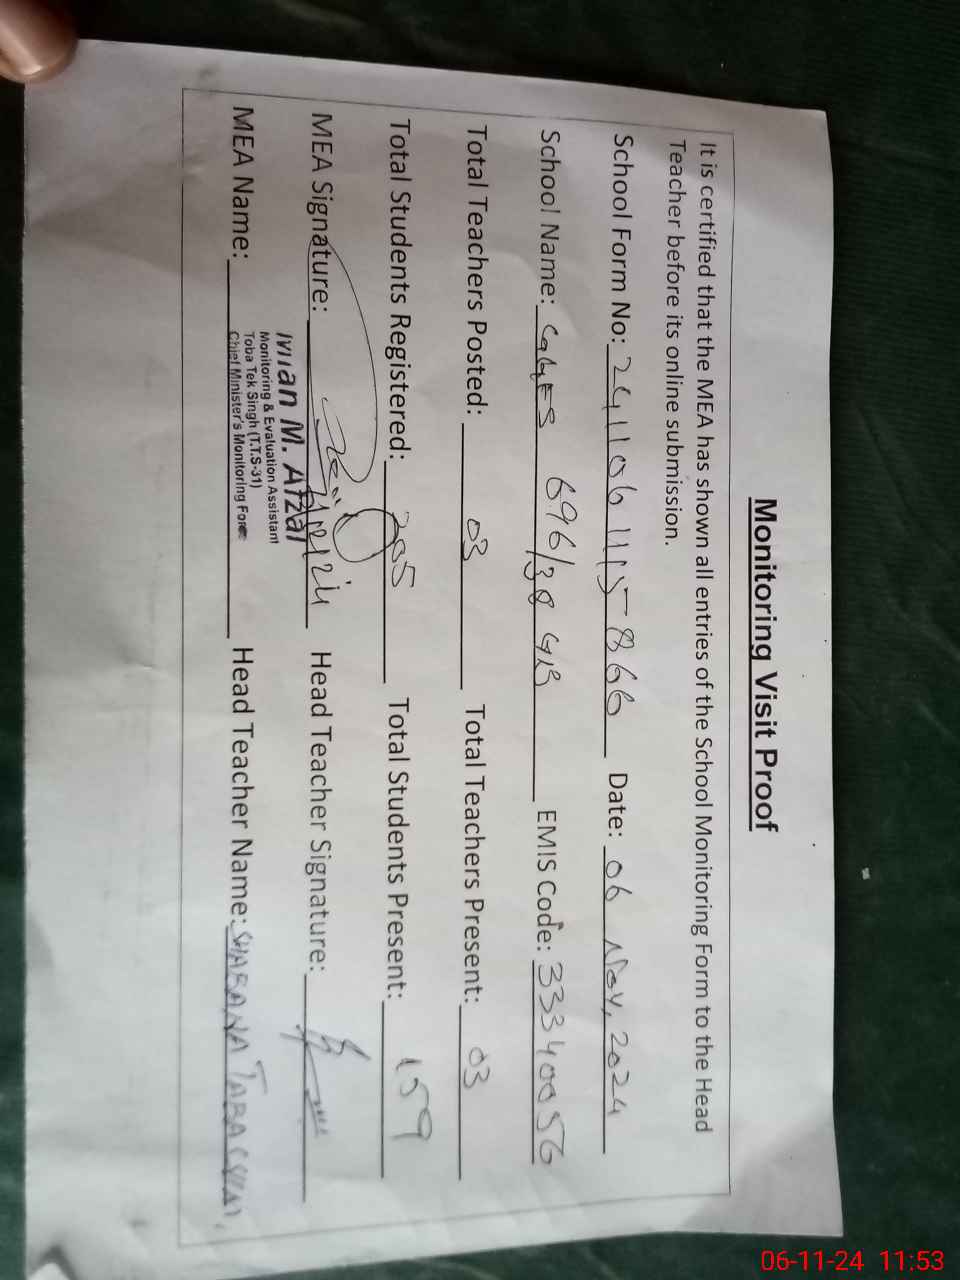 Monitoring Visit Proof
It is certified that the MEA has shown all entries of the School Monitoring Form to the Head
Teacher before its online submission.
School Form No: 241106 1115-866 Date: 06 Nov, 2024
School Name: 696/38 GB EMIS Code: 33340056
Total Teachers Posted: 03 Total Teachers Present: 03
Total Students Registered: 205 Total Students Present: 159
MEA Signature: Head Teacher Signature:
Mian M. Afzal
Monitoring & Evaluation Assistant
Toba Tek Singh (T.T.S-31)
Chief Minister's Monitoring Force
MEA Name: Head Teacher Name: SHABANA
06-11-24 11:53